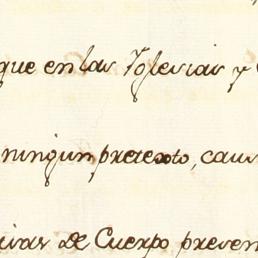 que en las Yglesias y
ningun pretexto, caus
de Cuerpo preven